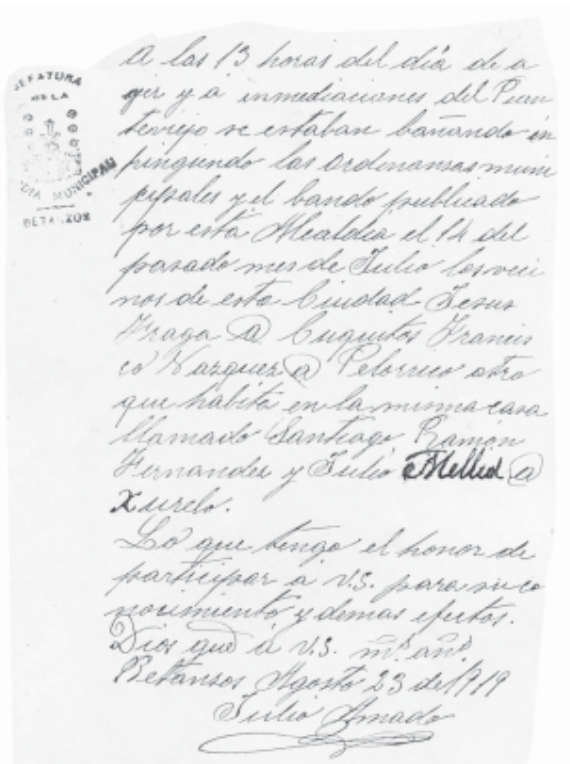 JEFATURA
DE LA
GUARDIA MUNICIPAL
BETANZOS
A las 13 horas del día de a
yer y a inmediaciones del Puen
teviejo se estaban bañando in
pingindo las ordenanzas muni
cipales y el bando publicado
por esta Alcaldia el 14 del
pasado mes de Julio los veci
nos de esta Ciudad Jesus
Fraga (a) Cuquitos Francis
co Vazquez (a) Pelorrico otro
que habita en la misma casa
llamado Santiago Ramón
Fernandez y Julio Mellid (a)
Xurelo.
Lo que tengo el honor de
participar a V.S. para su co
nocimiento y demas efectos.
Dios gue a V.S. ms. añs.
Betanzos Agosto 23 de 1919
Julio Amado